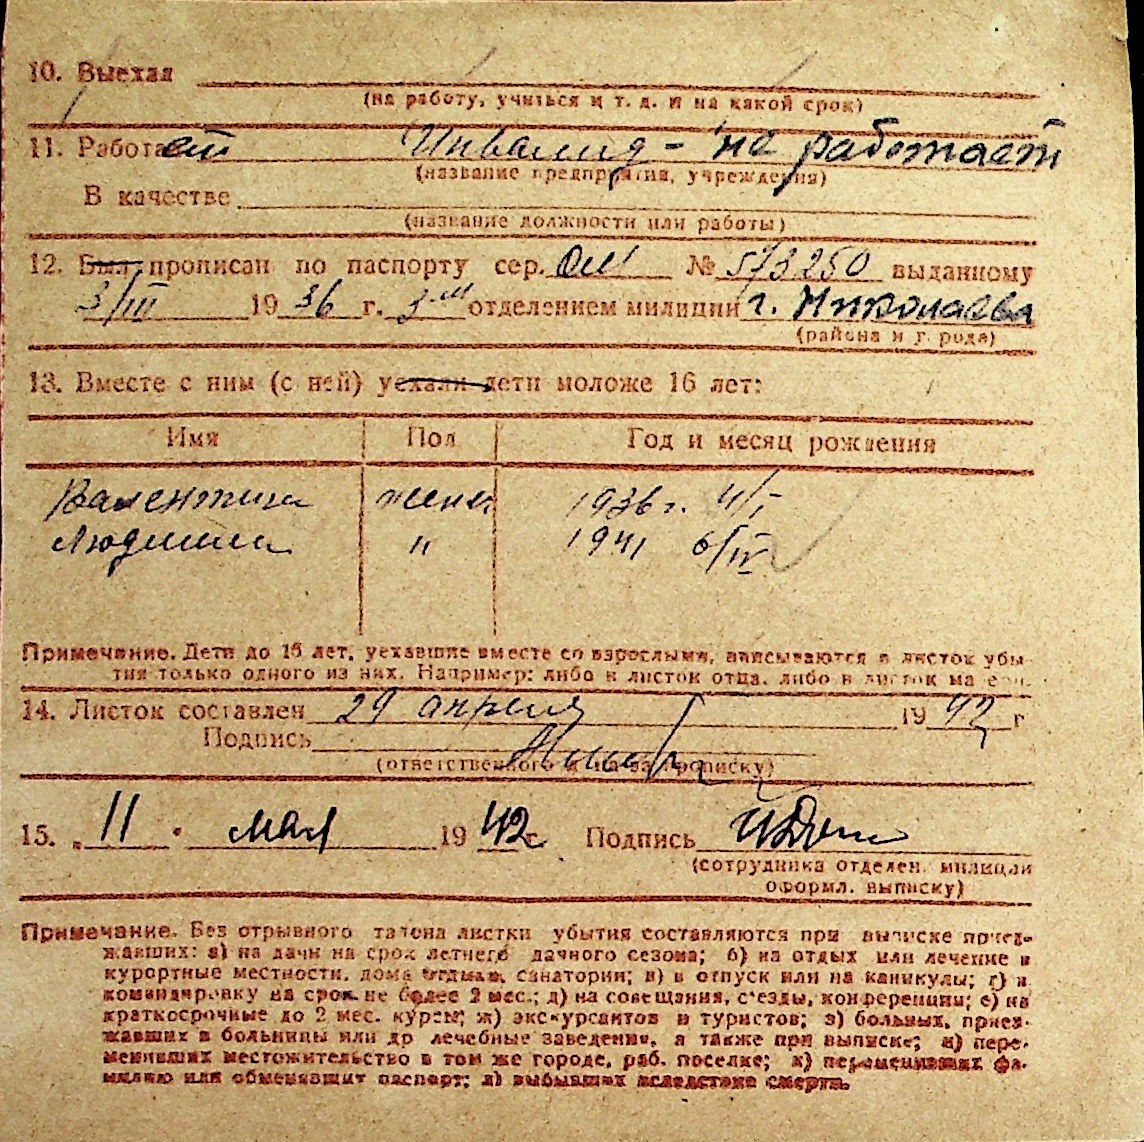 10. Выехал
(на работу, учиться и т. д. и на какой срок)
11. Работает Инвалид - не работает
(название предприятия, учреждения)
В качестве
(название должности или работы)
12. Был прописан по паспорту сер. № 573250 выданному
3/III 1936 г. 3-м отделением милиции г. Николаева
(района и города)
13. Вместе с ним (с ней) уехали дети моложе 16 лет:
Имя Пол Год и месяц рождения
Валентина женск 1936 г. 4/I
Людмила " 1941 6/IV
Примечание. Дети до 16 лет, уехавшие вместе со взрослыми, вписываются в листок убы-
тия только одного из них. Например: либо в листок отца, либо в листок матери.
14. Листок составлен 29 апреля 1942 г
Подпись
(ответственного за прописку)
15. „11" мая 1942 г. Подпись
(сотрудника отделен. милиции
оформл. выписку)
Примечание. Без отрывного талона листки убытия составляются при выписке приез-
жавших: а) на дачи на срок летнего дачного сезона; б) на отдых или лечение в
курортные местности, дома отдыха, санатории; в) в отпуск или на каникулы; г) в
командировку на срок не более 2 мес.; д) на совещания, с'езды, конференции; е) на
краткосрочные до 2 мес. курсы; ж) экскурсантов и туристов; з) больных, приез-
жавших в больницы или др лечебные заведения, а также при выписке; и) пере-
менивших местожительство в том же городе, раб. поселке; к) переменивших фа-
милию или обменявших паспорт; л) выбывших вследствие смерти.